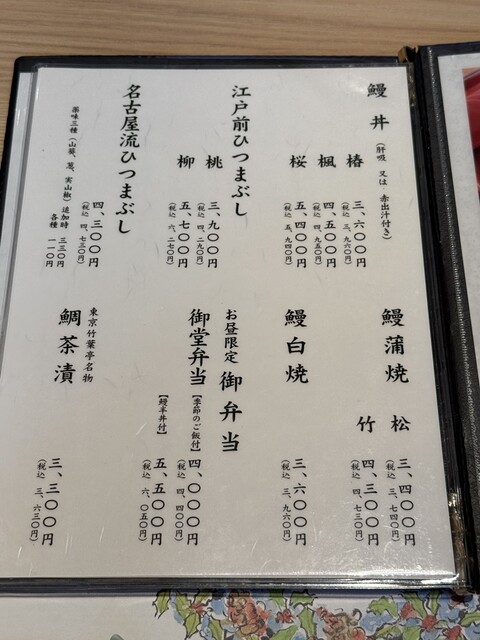 鰻丼（肝吸 又は 赤出汁付き）
椿 三、六〇〇円
（税込 三、九六〇円）
楓 四、五〇〇円
（税込 四、九五〇円）
桜 五、四〇〇円
（税込 五、九四〇円）
江戸前ひつまぶし
桃 三、九〇〇円
（税込 四、二九〇円）
柳 五、七〇〇円
（税込 六、二七〇円）
名古屋流ひつまぶし
四、三〇〇円
（税込 四、七三〇円）
薬味三種（山葵、葱、実山椒）追加時 三三〇円
各種 一一〇円
鰻蒲焼
松 三、四〇〇円
（税込 三、七四〇円）
竹 四、三〇〇円
（税込 四、七三〇円）
鰻白焼
三、六〇〇円
（税込 三、九六〇円）
お昼限定 御弁当
御堂弁当
【季節のご飯付】 四、〇〇〇円
（税込 四、四〇〇円）
【鰻半丼付】 五、五〇〇円
（税込 六、〇五〇円）
東京竹葉亭名物
鯛茶漬
三、三〇〇円
（税込 三、六三〇円）